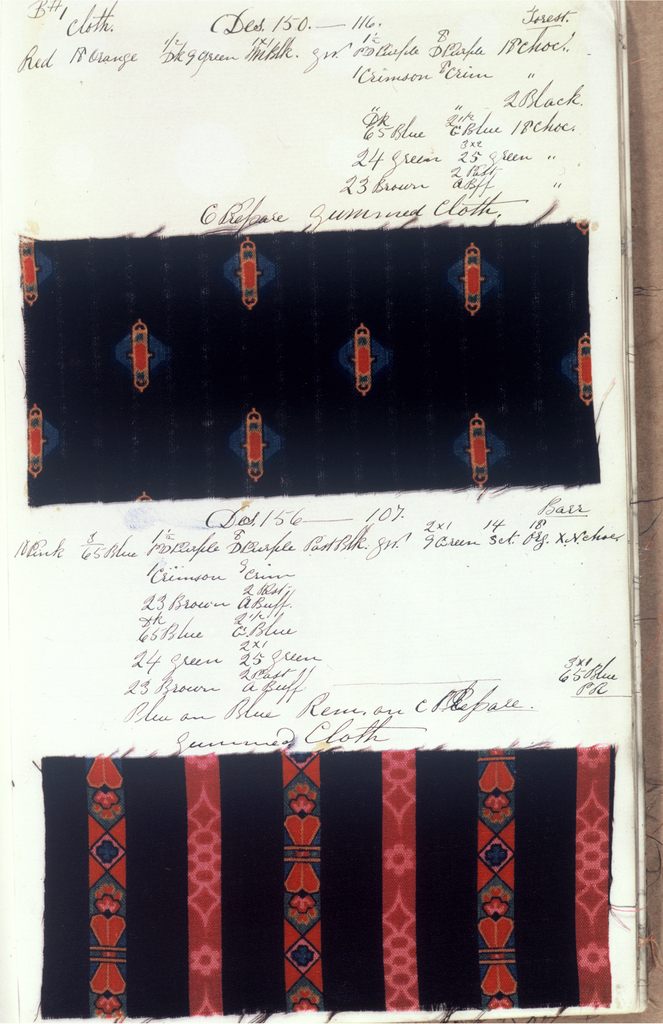 B#1 Cloth. Des. 150. — 116. Forest.
Red 18 Orange Dk 9 Green Blk. gr. PD Purple 8 D Purple 18 Choc.
1 Crimson 8 Crim "
" " 2 Black.
Dk 65 Blue C Blue 18 Choc.
24 Green 3x2 25 Green "
23 Brown 2 Past A Bff "
C Prepare Gummed Cloth.
Des. 156 — 107. Barr
Pink 3 65 Blue PD Purple 8 D Purple Past Blk. gr. 2x1 9 Green 14 Sct. 18 Org. X.N. Choc.
1 Crimson 9 Crim
23 Brown 2 Past A Buff.
Dk 65 Blue C Blue
24 Green 2x1 25 Green
23 Brown 2 Past A Buff
3x1 65 Blue PR
Blue on Blue Rem. on C Prepare.
Gummed Cloth